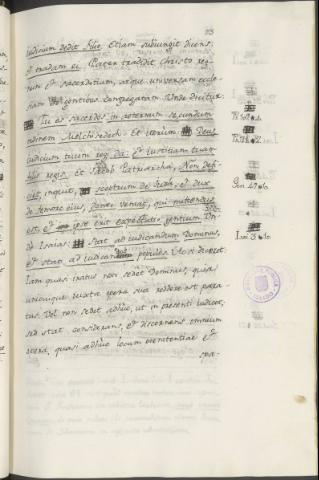 23
Iudicium dedit filio. Etiam subiungit dicens:
et tradam ei. Pater tradidit Christo reg-
num et sacerdotium, atque universam eccle-
siam gentibus congregatam. Unde dicitur:
Tu es sacerdos in æternum secundum
ordinem Melchisedech. Et iterum: Deus
iudicium tuum regi da: et iustitiam tuam
filio regis. et Iacob Patriarcha, Non defi-
ciet, inquit, sceptrum de Iuda, et dux
de femore eius, donec veniat, qui mittendus
est, et ipse erit expectatio gentium. Un-
de Isaias: Stat ad iudicandum Dominus,
et stat ad iudicandum populos. Ac si diceret.
Iam quasi iratus non sedet Dominus, quia
unicuique iuxta opera sua reddere est para-
tus. Vel non sedet adhuc, ut in presenti iudicet,
sed stat considerans, et discernens omnium
opera, quasi adhuc locum penitentiae et
spa-
Gen. 49. 10.
Isai. 3.